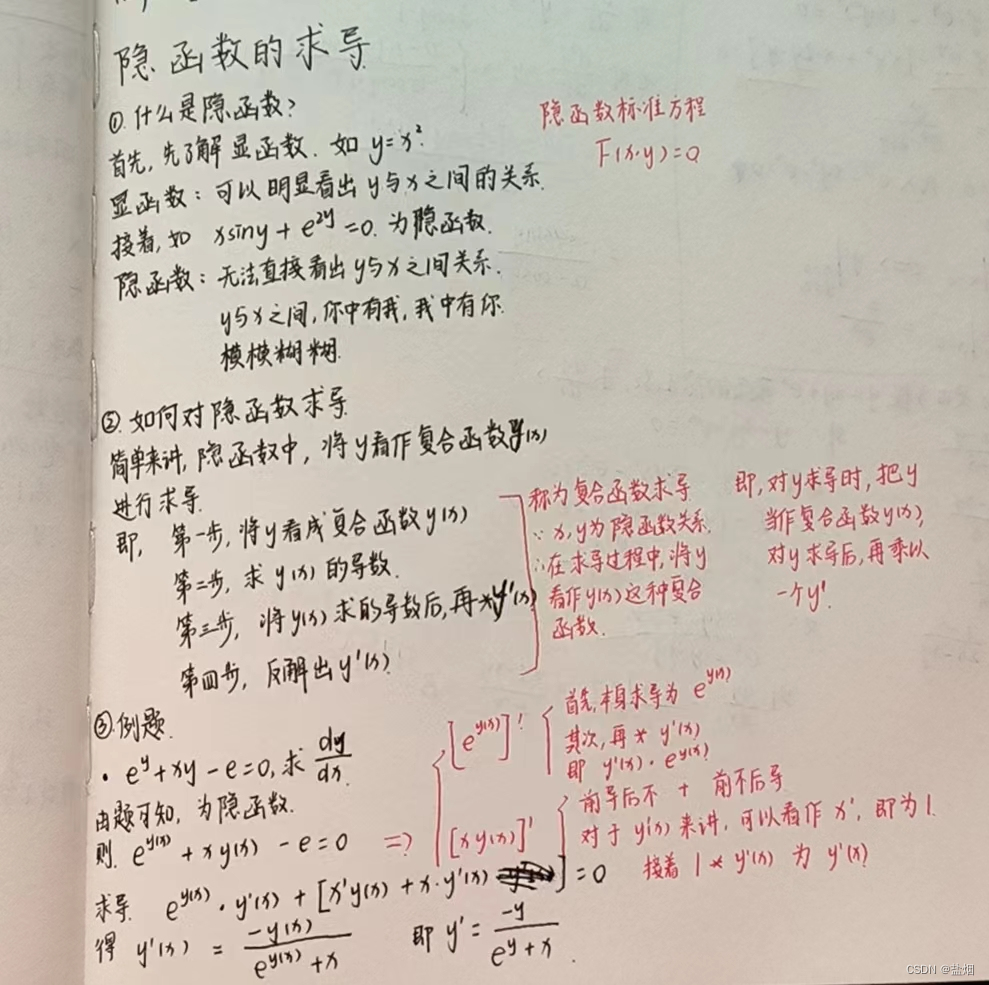 隐函数的求导
①.什么是隐函数?
隐函数标准方程
首先,先了解显函数.如 y=x².
F(x·y)=0
显函数:可以明显看出y与x之间的关系.
接着,如 xsiny+e^{2y}=0.为隐函数.
隐函数:无法直接看出y与x之间关系.
y与x之间,你中有我,我中有你.
模模糊糊.
②.如何对隐函数求导.
简单来讲,隐函数中,将y看作复合函数y(x)
进行求导.
即, 第一步,将y看成复合函数y(x)
第二步,求 y(x) 的导数.
第三步, 将y(x)求的导数后,再*y'(x)
第四步,反解出y'(x).
称为复合函数求导
∵ x,y为隐函数关系.
∴在求导过程中,将y
看作y(x)这种复合
函数.
即,对y求导时,把y
当作复合函数y(x),
对y求导后,再乘以
一个y'.
③.例题.
· e^y+xy-e=0,求 dy/dx.
由题可知,为隐函数.
则. e^{y(x)}+xy(x)-e=0 =>
[e^{y(x)}]'
首先,本身求导为 e^{y(x)}
其次,再* y'(x)
即 y'(x)·e^{y(x)}?
[xy(x)]'
前导后不 + 前不后导
对于y'(x)来讲,可以看作x',即为1.
接着 1*y'(x) 为 y'(x)
求导. e^{y(x)}·y'(x)+[x'y(x)+x·y'(x)]=0
得 y'(x) = -y(x)/(e^{y(x)}+x) 即 y' = -y/(e^y+x).
CSDN @盐烟